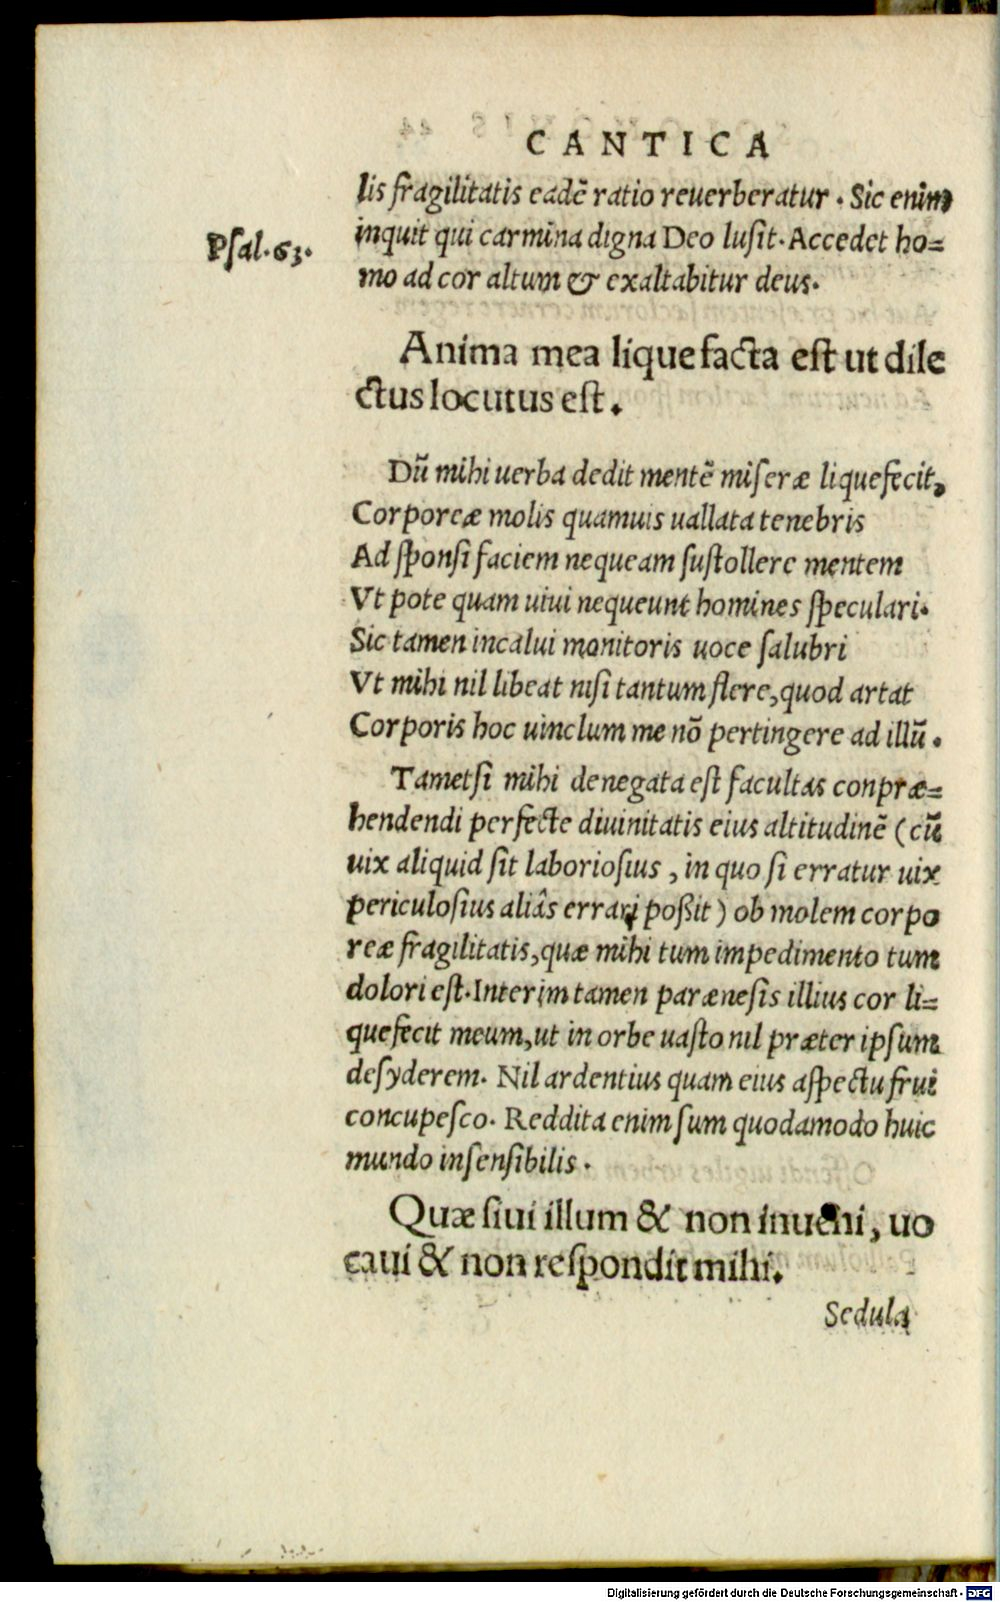 CANTICA
lis fragilitatis eadē ratio reuerberatur. Sic enim
inquit qui carmina digna Deo lusit. Accedet ho=
Psal. 63.
mo ad cor altum & exaltabitur deus.
Anima mea liquefacta est ut dile
ctus locutus est.
Dū mihi uerba dedit mentē miseræ liquefecit,
Corporeæ molis quamuis uallata tenebris
Ad sponsi faciem nequeam sustollere mentem
Vt pote quam uiui nequeunt homines speculari.
Sic tamen incalui monitoris uoce salubri
Vt mihi nil libeat nisi tantum flere, quod artat
Corporis hoc uinclum me nō pertingere ad illū.
Tametsi mihi denegata est facultas conpræ=
hendendi perfecte diuinitatis eius altitudinē (cū
uix aliquid sit laboriosius, in quo si erratur uix
periculosius aliâs errari poßit) ob molem corpo
reæ fragilitatis, quæ mihi tum impedimento tum
dolori est. Interim tamen parænesis illius cor li=
quefecit meum, ut in orbe uasto nil præter ipsum
desyderem. Nil ardentius quam eius aspectu frui
concupesco. Reddita enim sum quodamodo huic
mundo insensibilis.
Quæsiui illum & non inueni, uo
caui & non respondit mihi.
Sedula
Digitalisierung gefördert durch die Deutsche Forschungsgemeinschaft - DFG